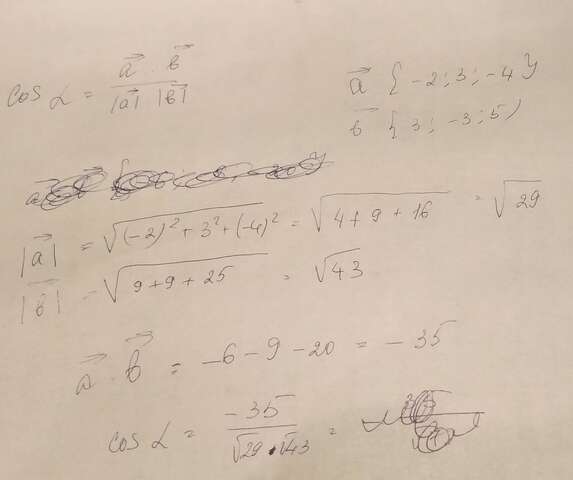 cos α = a⃗ · b⃗ / |a⃗| |b⃗|
a⃗ { -2; 3; -4 }
b⃗ { 3; -3; 5 )
|a⃗| = √(-2)² + 3² + (-4)² = √4 + 9 + 16 = √29
|b⃗| = √9 + 9 + 25 = √43
a⃗ · b⃗ = -6 - 9 - 20 = -35
cos α = -35 / √29 · √43 =